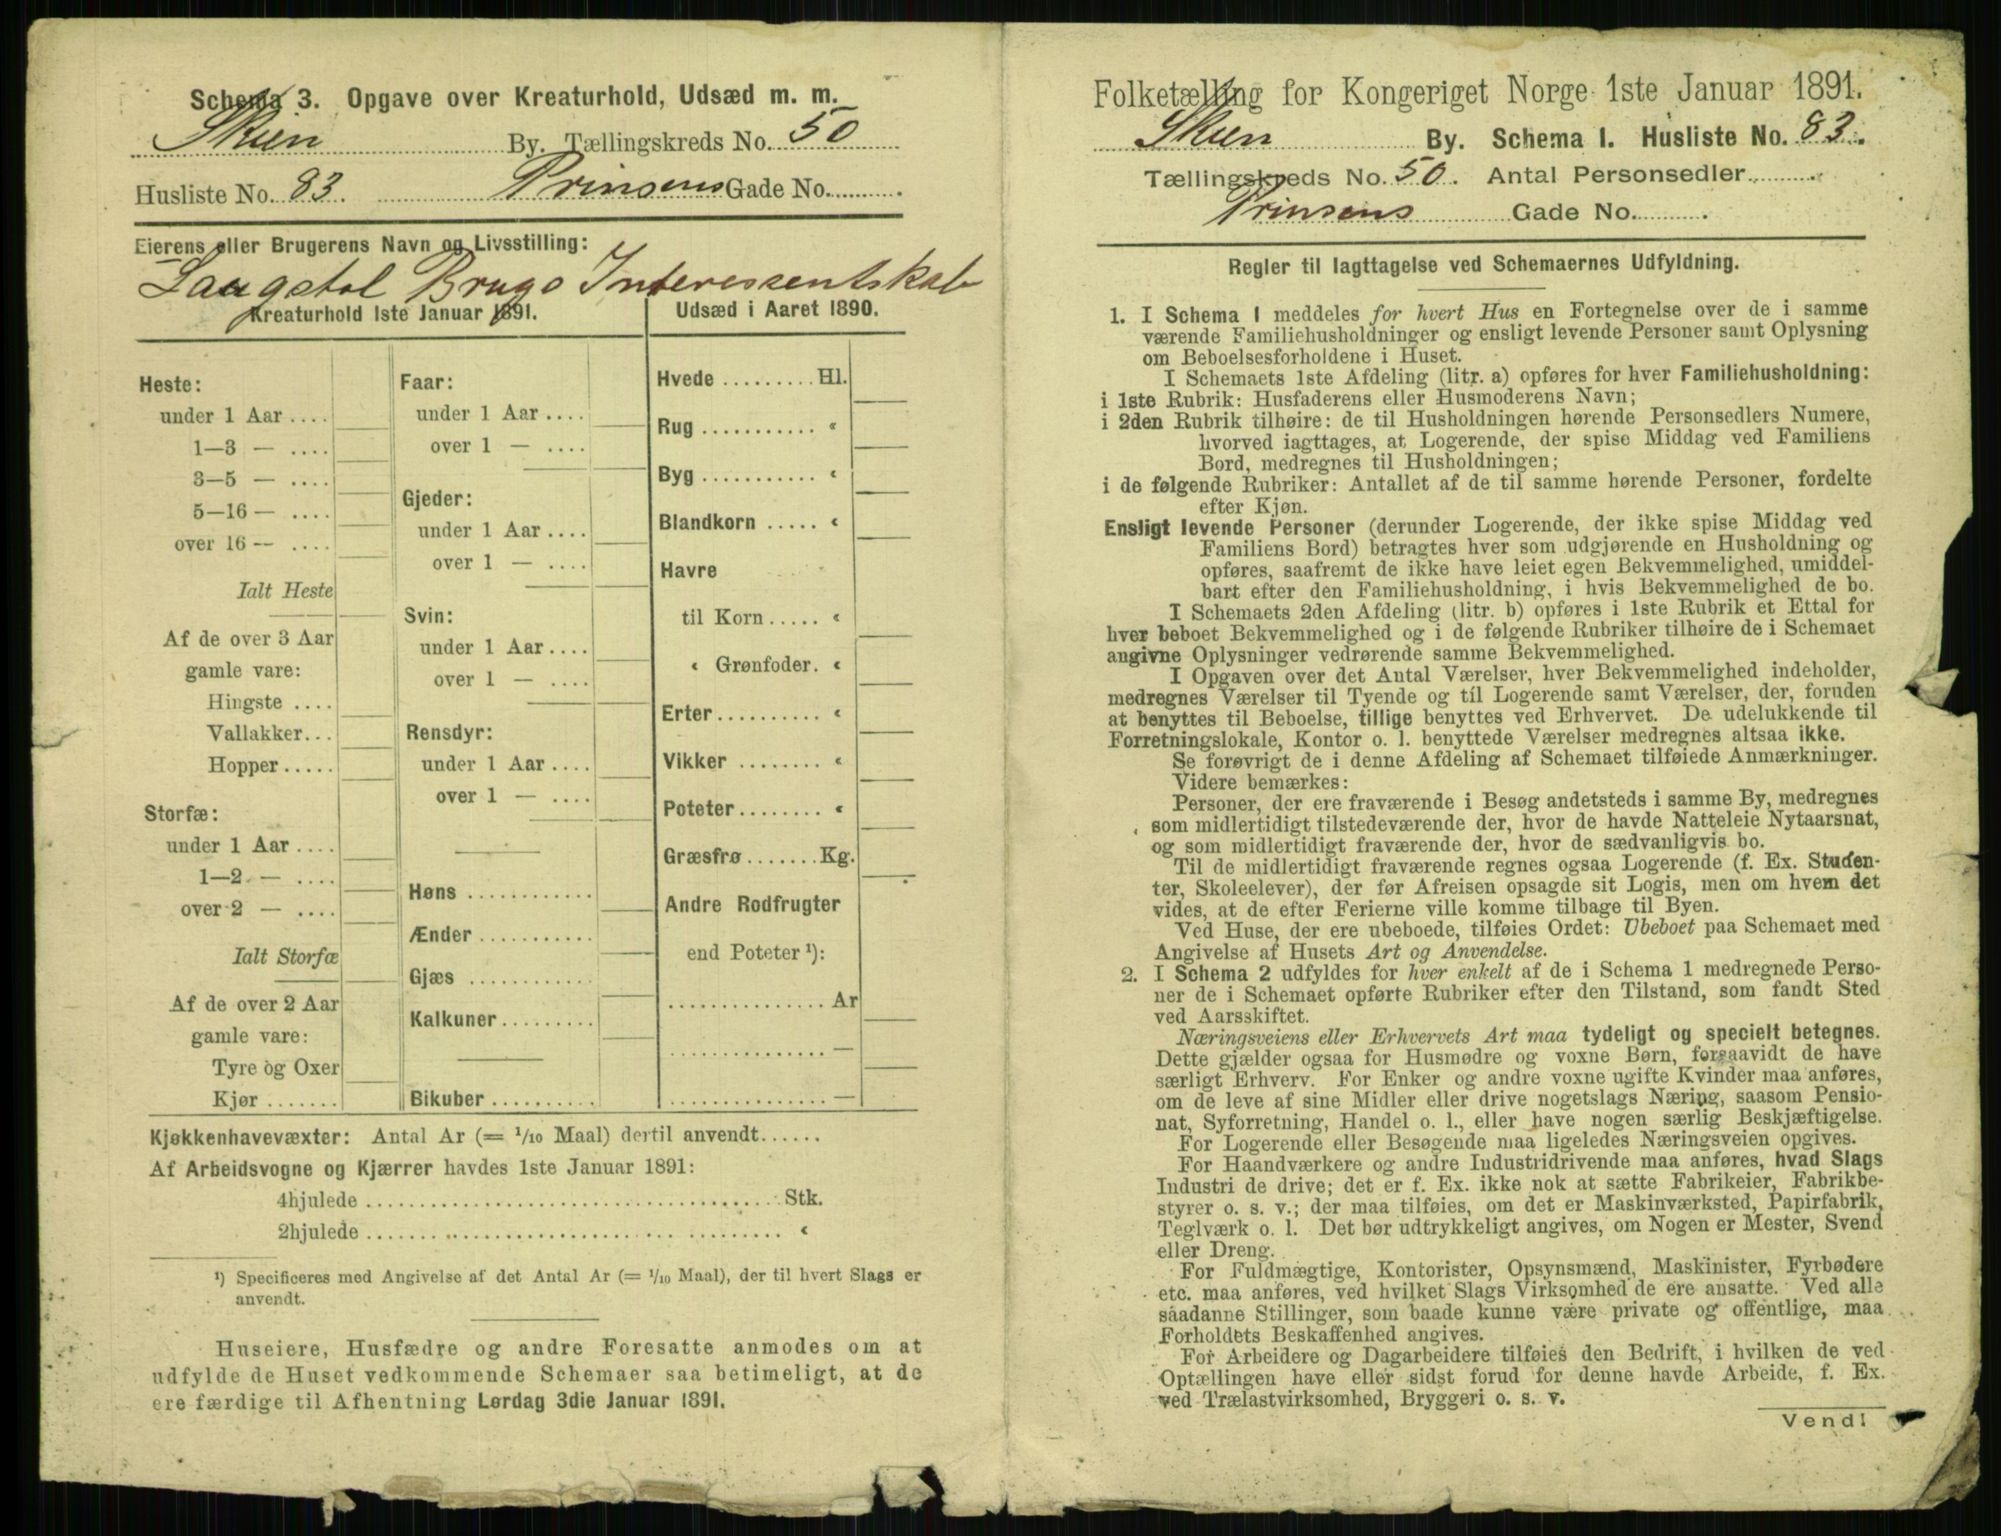 Schema 3. Opgave over Kreaturhold, Udsæd m. m.
Skien By. Tællingskreds No. 50
Husliste No. 83. Prinsens Gade No. .
Eierens eller Brugerens Navn og Livsstilling:
Laugstol Brugs Interessentskab
Kreaturhold 1ste Januar 1891.
Heste:
under 1 Aar ....
1—3 — ....
3—5 — ....
5—16 — ....
over 16 — ....
Ialt Heste
Af de over 3 Aar
gamle vare:
Hingste ....
Vallakker...
Hopper.....
Storfæ:
under 1 Aar ....
1—2 — ....
over 2 — ....
Ialt Storfæ
Af de over 2 Aar
gamle vare:
Tyre og Oxer
Kjør .......
Faar:
under 1 Aar ....
over 1 — ....
Gjeder:
under 1 Aar ....
over 1 — ....
Svin:
under 1 Aar ....
over 1 — ....
Rensdyr:
under 1 Aar ....
over 1 — ....
Høns ............
Ænder...........
Gjæs ............
Kalkuner.........
Bikuber ..........
Udsæd i Aaret 1890.
Hvede ......... Hl.
Rug ........... «
Byg ........... «
Blandkorn ..... «
Havre
til Korn ..... «
« Grønfoder. «
Erter.......... «
Vikker ........ «
Poteter........ «
Græsfrø....... Kg.
Andre Rodfrugter
end Poteter ¹):
............... Ar
............... —
............... —
Kjøkkenhavevæxter: Antal Ar (= 1/10 Maal) dertil anvendt......
Af Arbeidsvogne og Kjærrer havdes 1ste Januar 1891:
4hjulede ........................................ Stk.
2hjulede ........................................ «
¹) Specificeres med Angivelse af det Antal Ar (= 1/10 Maal), der til hvert Slags er
anvendt.
Huseiere, Husfædre og andre Foresatte anmodes om at
udfylde de Huset vedkommende Schemaer saa betimeligt, at de
ere færdige til Afhentning Lørdag 3die Januar 1891.
Folketælling for Kongeriget Norge 1ste Januar 1891.
Skien By. Schema 1. Husliste No. 83.
Tællingskreds No. 50. Antal Personsedler .
Prinsens Gade No. .
Regler til Iagttagelse ved Schemaernes Udfyldning.
1. I Schema 1 meddeles for hvert Hus en Fortegnelse over de i samme
værende Familiehusholdninger og ensligt levende Personer samt Oplysning
om Beboelsesforholdene i Huset.
I Schemaets 1ste Afdeling (litr. a) opføres for hver Familiehusholdning:
i 1ste Rubrik: Husfaderens eller Husmoderens Navn;
i 2den Rubrik tilhøire: de til Husholdningen hørende Personsedlers Numere,
hvorved iagttages, at Logerende, der spise Middag ved Familiens
Bord, medregnes til Husholdningen;
i de følgende Rubriker: Antallet af de til samme hørende Personer, fordelte
efter Kjøn.
Ensligt levende Personer (derunder Logerende, der ikke spise Middag ved
Familiens Bord) betragtes hver som udgjørende en Husholdning og
opføres, saafremt de ikke have leiet egen Bekvemmelighed, umiddel-
bart efter den Familiehusholdning, i hvis Bekvemmelighed de bo.
I Schemaets 2den Afdeling (litr. b) opføres i 1ste Rubrik et Ettal for
hver beboet Bekvemmelighed og i de følgende Rubriker tilhøire de i Schemaet
angivne Oplysninger vedrørende samme Bekvemmelighed.
I Opgaven over det Antal Værelser, hver Bekvemmelighed indeholder,
medregnes Værelser til Tyende og til Logerende samt Værelser, der, foruden
at benyttes til Beboelse, tillige benyttes ved Erhvervet. De udelukkende til
Forretningslokale, Kontor o. l. benyttede Værelser medregnes altsaa ikke.
Se forøvrigt de i denne Afdeling af Schemaet tilføiede Anmærkninger.
Videre bemærkes:
Personer, der ere fraværende i Besøg andetsteds i samme By, medregnes
som midlertidigt tilstedeværende der, hvor de havde Natteleie Nytaarsnat,
og som midlertidigt fraværende der, hvor de sædvanligvis bo.
Til de midlertidigt fraværende regnes ogsaa Logerende (f. Ex. Studen-
ter, Skoleelever), der før Afreisen opsagde sit Logis, men om hvem det
vides, at de efter Ferierne ville komme tilbage til Byen.
Ved Huse, der ere ubeboede, tilføies Ordet: Ubeboet paa Schemaet med
Angivelse af Husets Art og Anvendelse.
2. I Schema 2 udfyldes for hver enkelt af de i Schema 1 medregnede Perso-
ner de i Schemaet opførte Rubriker efter den Tilstand, som fandt Sted
ved Aarsskiftet.
Næringsveiens eller Erhvervets Art maa tydeligt og specielt betegnes.
Dette gjælder ogsaa for Husmødre og voxne Børn, forsaavidt de have
særligt Erhverv. For Enker og andre voxne ugifte Kvinder maa anføres,
om de leve af sine Midler eller drive nogetslags Næring, saasom Pensio-
nat, Syforretning, Handel o. l., eller have nogen særlig Beskjæftigelse.
For Logerende eller Besøgende maa ligeledes Næringsveien opgives.
For Haandværkere og andre Industridrivende maa anføres, hvad Slags
Industri de drive; det er f. Ex. ikke nok at sætte Fabrikeier, Fabrikbe-
styrer o. s. v.; der maa tilføies, om det er Maskinværksted, Papirfabrik,
Teglværk o. l. Det bør udtrykkeligt angives, om Nogen er Mester, Svend
eller Dreng.
For Fuldmægtige, Kontorister, Opsynsmænd, Maskinister, Fyrbødere
etc. maa anføres, ved hvilket Slags Virksomhed de ere ansatte. Ved alle
saadanne Stillinger, som baade kunne være private og offentlige, maa
Forholdets Beskaffenhed angives.
For Arbeidere og Dagarbeidere tilføies den Bedrift, i hvilken de ved
Optællingen have eller sidst forud for denne havde Arbeide, f. Ex.
ved Trælastvirksomhed, Bryggeri o. s. v.
Vend!